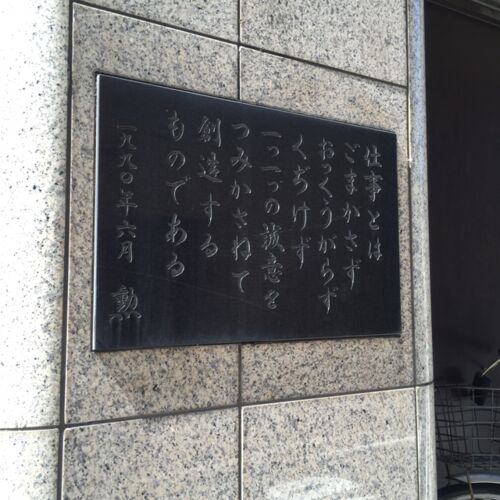 仕事とは
ごまかさず
おっくうがらず
くぢけず
一つ一つの誠意を
つみかさねて
創造する
ものである
一九九〇年六月 勲